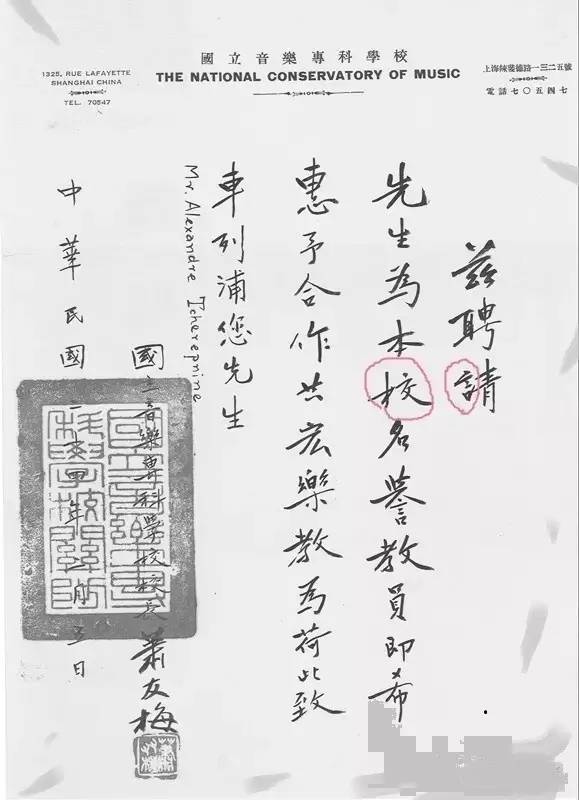 國立音樂專科學校
THE NATIONAL CONSERVATORY OF MUSIC
1325, RUE LAFAYETTE
SHANGHAI CHINA
TEL. 70547
上海辣斐德路一三二五號
電話七〇五四七
茲聘請
先生為本校名譽教員即希
惠予合作共宏樂教為荷此致
車列浦您先生
Mr. Alexandre Tcherepnine
國立音樂專科學校校長蕭友梅
中華民國二十四年月五日